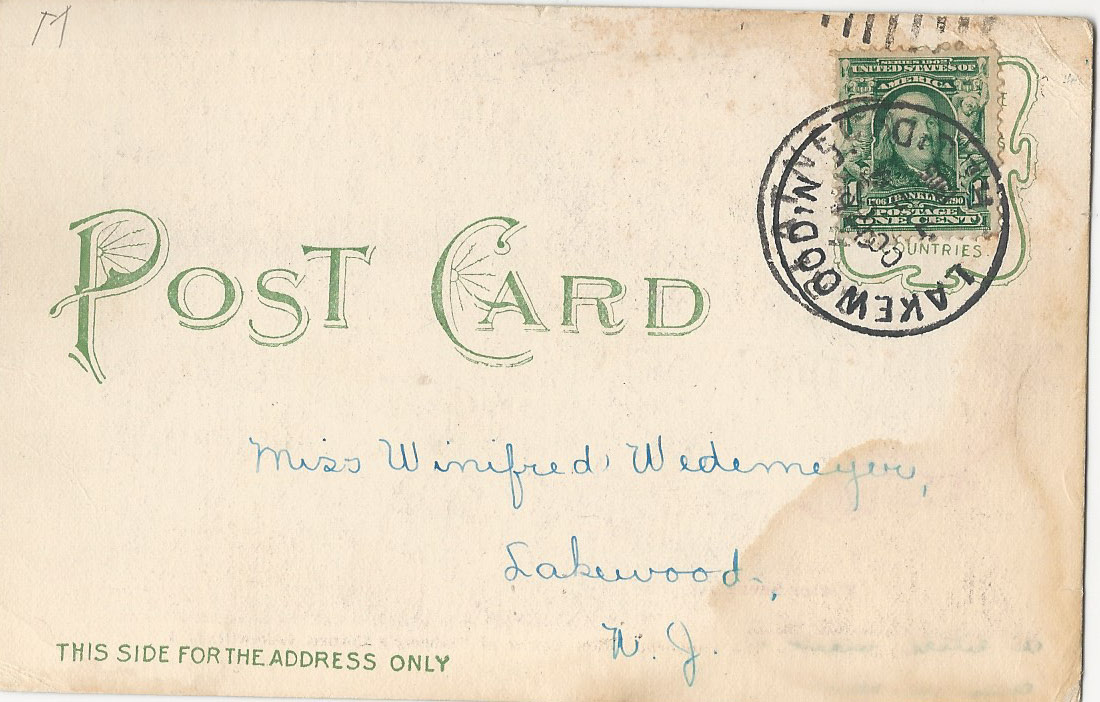 M
SERIES 1902
UNITED STATES OF
AMERICA
1706 FRANKLIN 1790
POSTAGE
ONE CENT
COUNTRIES.
LAKEWOOD, N.J.
REC'D
POST CARD
Miss Winifred Wedemeyer,
Lakewood,
N. J.
THIS SIDE FOR THE ADDRESS ONLY